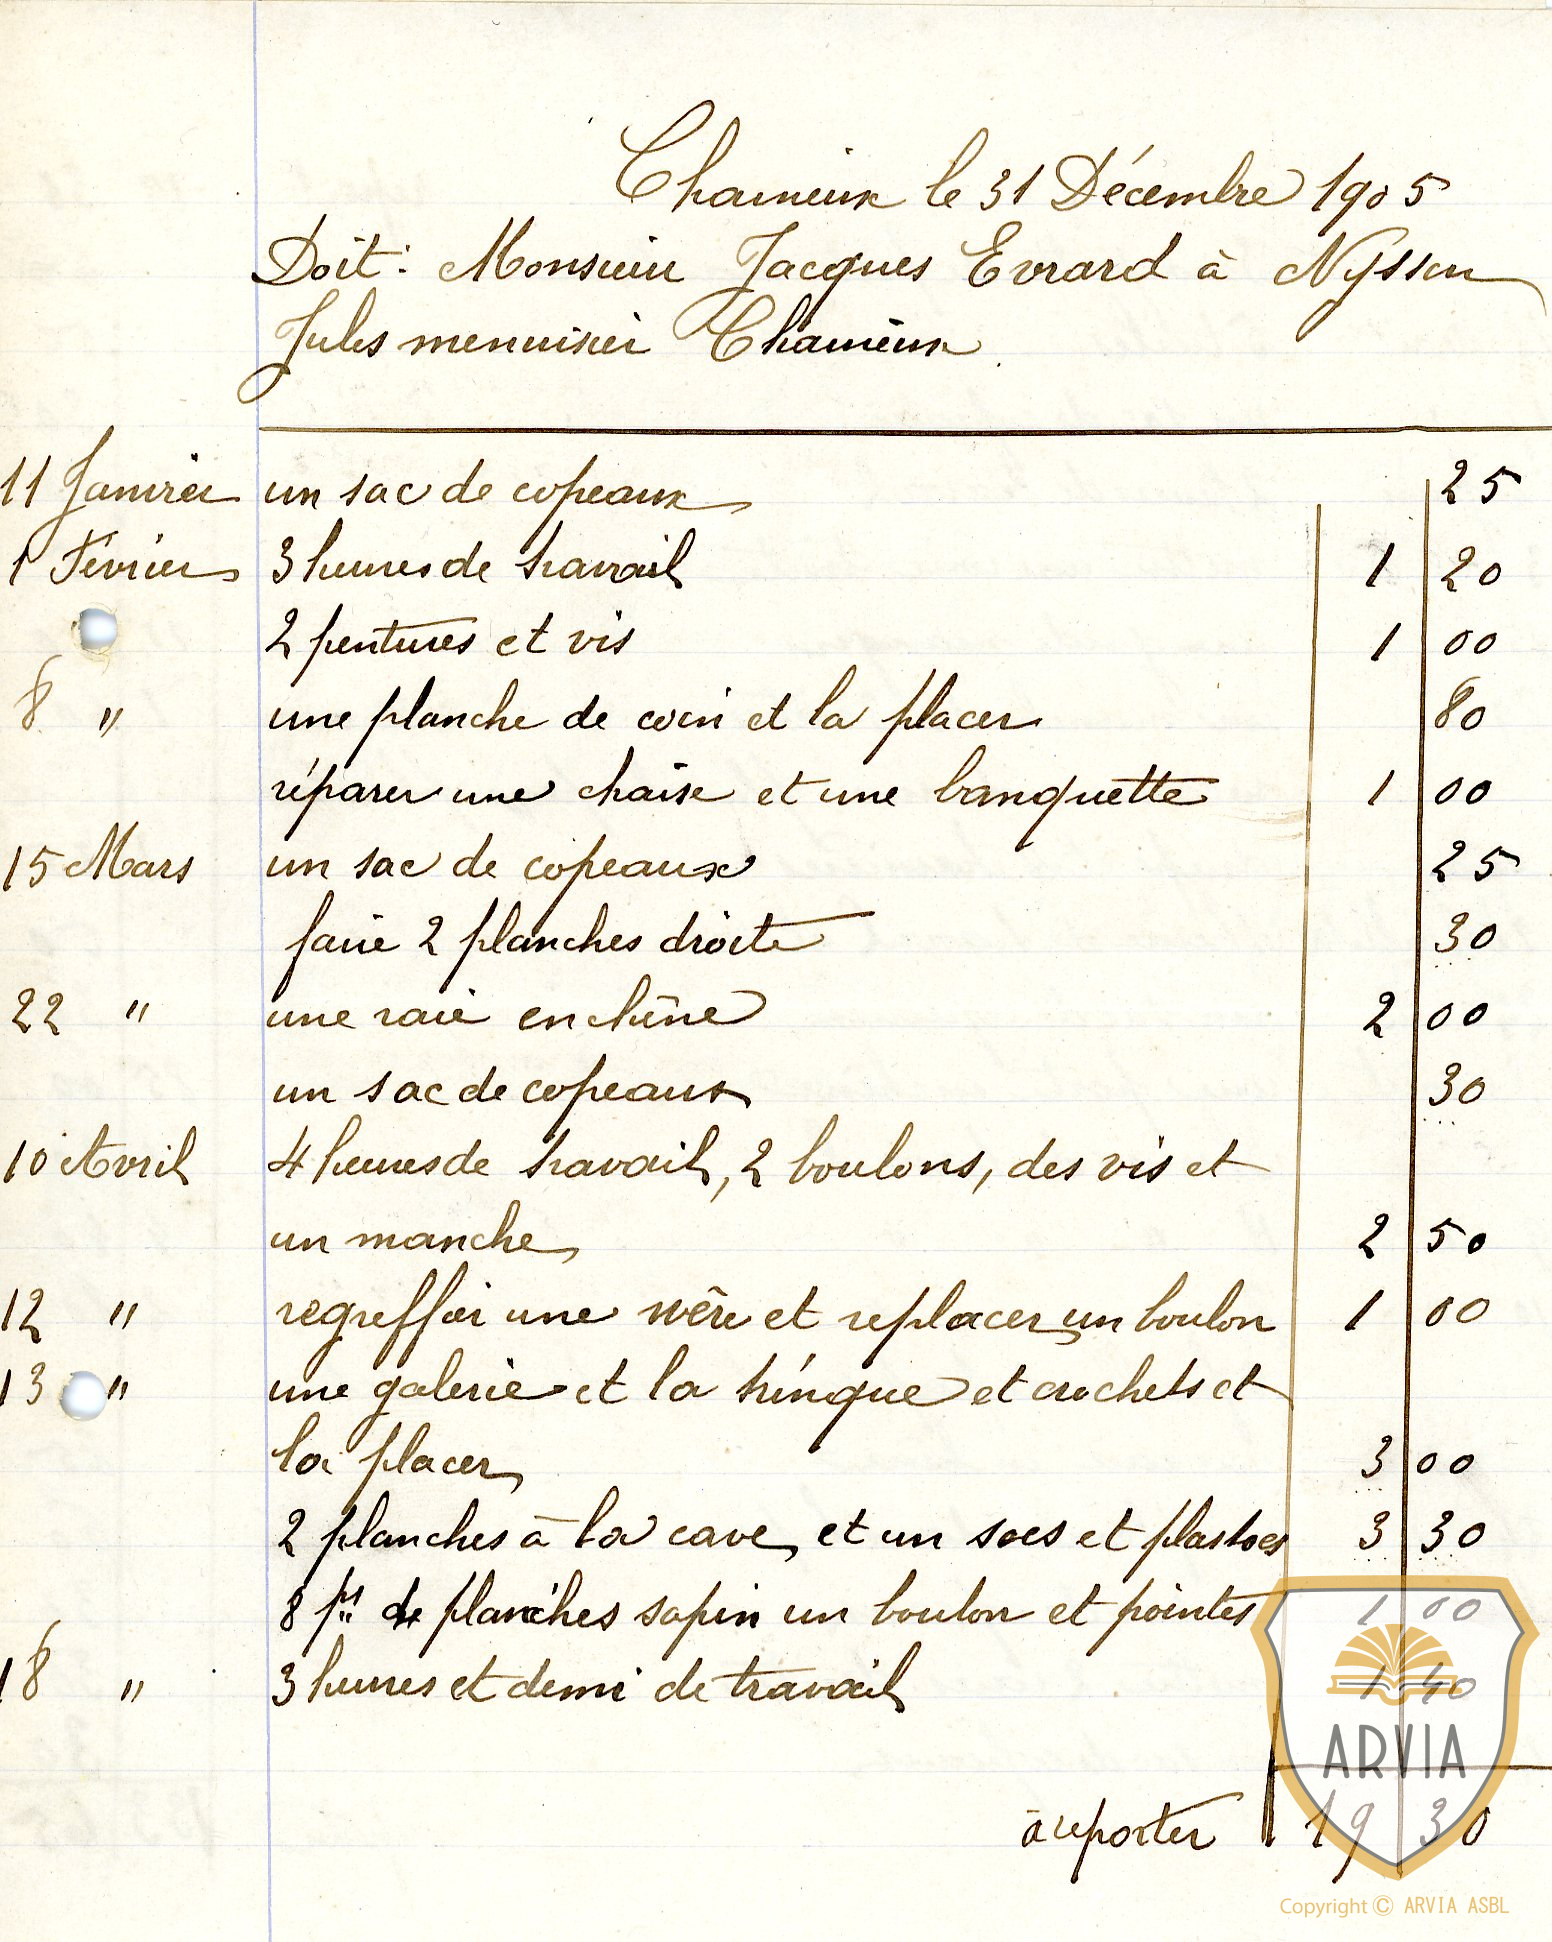 Charneux le 31 Décembre 1905
Doit: Monsieur Jacques Evrard à Nyssen
Jules menuisier Charneux
11 Janvier un sac de copeaux 25
1 Février 3 heures de travail 1 20
2 pentures et vis 1 00
8 " une planche de coin et la placer 80
réparer une chaise et une banquette 1 00
15 Mars un sac de copeaux 25
faire 2 planches droite 30
22 " une raie en chêne 2 00
un sac de copeaux 30
10 Avril 4 heures de travail, 2 boulons, des vis et
un manche 2 50
12 " regreffer une wêre et replacer un boulon 1 00
13 " une galerie et la tringue et crochets et
la placer 3 00
2 planches à la cave et un et 3 30
8 ps de planches sapin un boulon et pointes 1 00
18 " 3 heures et demi de travail 1 40
à reporter 19 30
ARVIA
Copyright © ARVIA ASBL